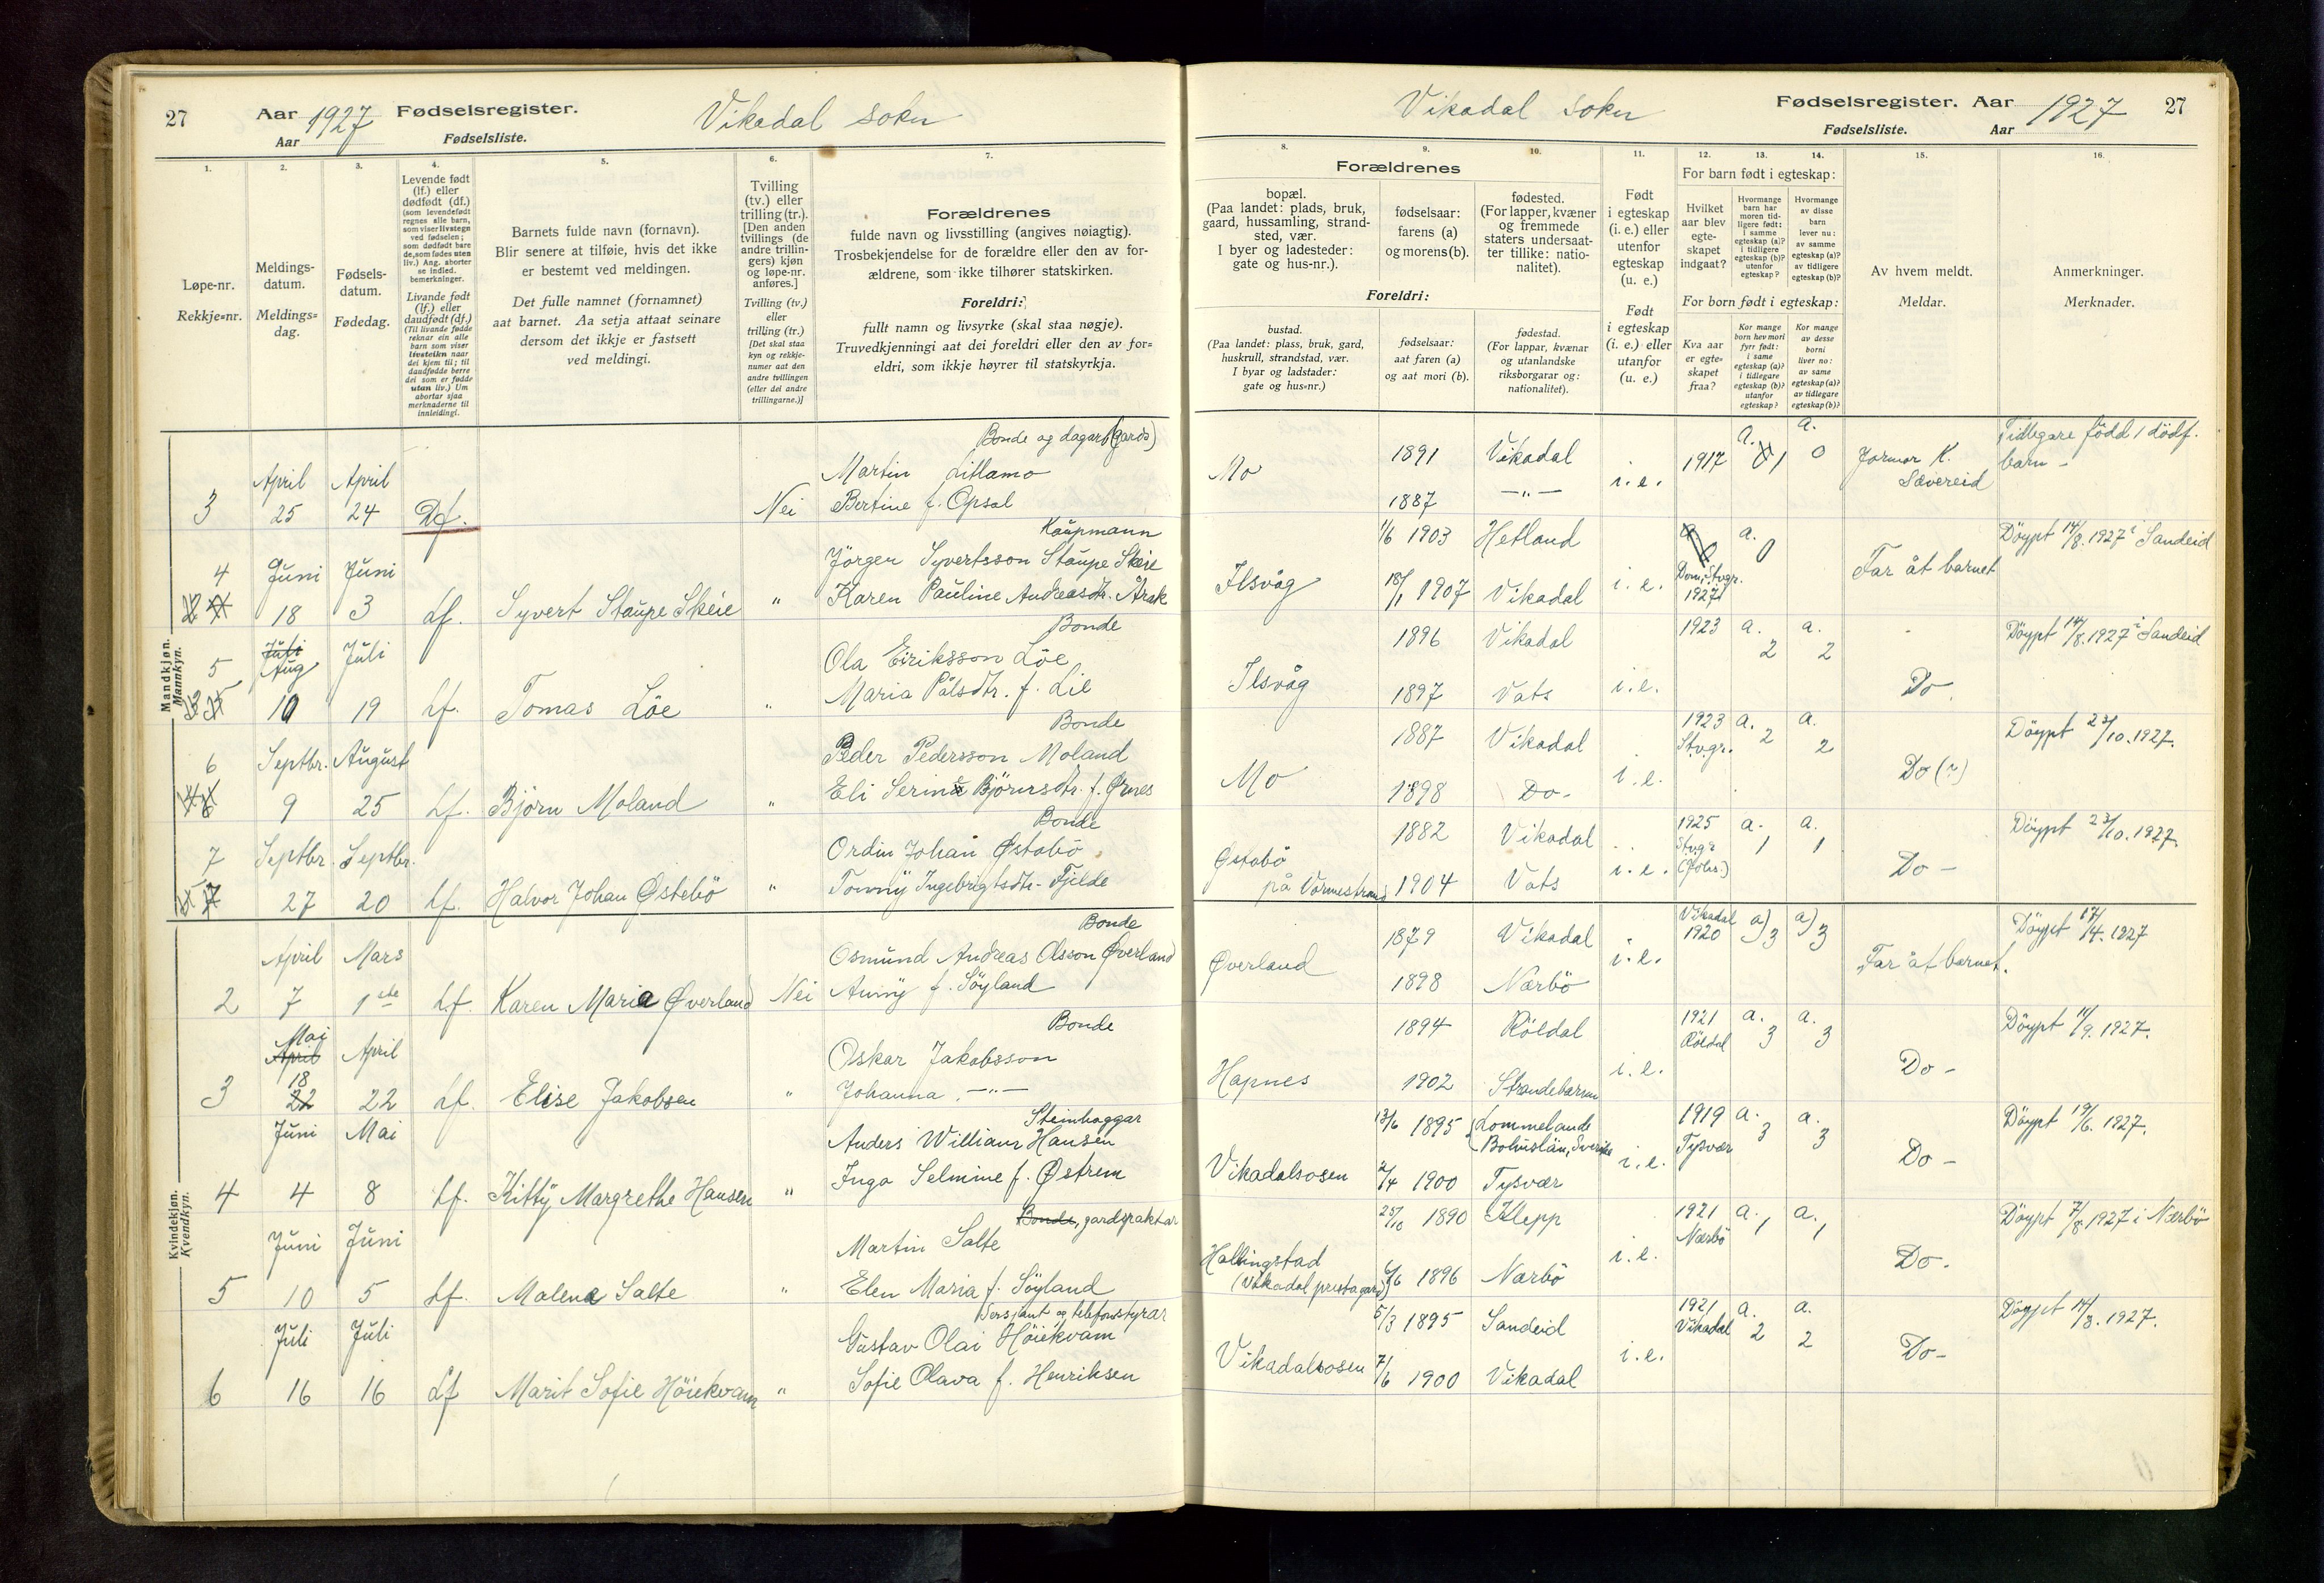 27
Aar 1927 Fødselsregister.
Aar
Fødselsliste.
Vikadal sokn
1. 2. 3. 4. 5. 6. 7.
Løpe-nr.
Rekkje=nr.
Meldings-
datum.
Meldings=
dag.
Fødsels-
datum.
Fødedag.
Levende født
(lf.) eller
dødfødt (df.)
(som levendefødt
regnes alle barn,
som viser livstegn
ved fødselen;
som dødfødt bare
de, som fødes uten
liv.) Ang. aborter
se indled.
bemerkninger.
Livande født
(lf.) eller
daudfødt (df.)
(Til livande fødde
reknar ein alle
barn som viser
livsteikn naar
dei kjem til; til
daudfødde berre
dei som er fødde
utan liv.) Um
abortar sjaa
merknaderne til
innleidingi.
Barnets fulde navn (fornavn).
Blir senere at tilføie, hvis det ikke
er bestemt ved meldingen.
Det fulle namnet (fornamnet)
aat barnet. Aa setja attaat seinare
dersom det ikkje er fastsett
ved meldingi.
Tvilling
(tv.) eller
trilling (tr.).
[Den anden
tvillings (de
andre trillin-
gers) kjøn
og løpe-nr.
anføres.]
Tvilling (tv.)
eller
trilling (tr.)
[Det skal staa
kyn og rekkje-
numer aat den
andre tvillingen
(eller dei andre
trillingarne.)]
Forældrenes
fulde navn og livsstilling (angives nøiagtig).
Trosbekjendelse for de forældre eller den av for-
ældrene, som ikke tilhører statskirken.
Foreldri:
fullt namn og livsyrke (skal staa nøgje).
Truvedkjenningi aat dei foreldri eller den av for=
eldri, som ikkje høyrer til statskyrkja.
Mandkjøn.
Mannkyn.
Bonde og dagarb. (gards)
April April Martin Litlamo
3 25 24 Df. Nei Bertine f. Opsal
Kaupmann
4 Juni Juni Jörgen Syvertsson Staupe Skeie
18 3 Lf. Syvert Staupe Skeie " Karen Pauline Andreasdtr. Årak
Bonde
5 Juli Aug Juli Ola Eiriksson Löe
10 19 Lf. Tomas Löe " Maria Pålsdtr. f. Lie
Bonde
6 Septbr. August Peder Pedersson Moland
9 25 Lf. Björn Moland " Eli Serina Björnsdtr. f. Ørnes
Bonde
7 Septbr. Septbr. Ordin Johan Østabö
27 20 Lf. Halvor Johan Østebö " Tonny Ingebrigtsdtr. Fjelde
Kvindekjøn.
Kvendkyn.
Bonde
April Mars Osmund Andreas Olsson Øverland
2 7 1ste Lf. Karen Maria Øverland Nei Anny f. Söyland
Bonde
Mai April April Oskar Jakobsson
18
3 22 22 Lf. Elise Jakobsen " Johanna —"—
Steinhoggar
Juni Mai Anders William Hansen
4 4 8 Lf. Kitty Margrethe Hansen " Inga Selmine f. Østrem
Bonde, gardspaktar
Juni Juni Martin Salte
5 10 5 Lf. Malena Salte " Elen Maria f. Söyland
Sersjant og telefonstyrar
Juli Juli Gustav Olai Höiekvam
6 16 16 Lf Marit Sofie Höiekvam " Sofie Olava f. Henriksen
Vikadal sokn
Fødselsregister. Aar 1927 27
Fødselsliste. Aar
8. 9. 10. 11. 12. 13. 14. 15. 16.
Forældrenes
bopæl.
(Paa landet: plads, bruk,
gaard, hussamling, strand-
sted, vær.
I byer og ladesteder:
gate og hus-nr.).
fødselsaar:
farens (a)
og morens (b).
fødested.
(For lapper, kvæner
og fremmede
staters undersaat-
ter tillike: natio-
nalitet).
Foreldri:
bustad.
(Paa landet: plass, bruk, gard,
huskrull, strandstad, vær.
I byar og ladstader:
gate og hus=nr.)
fødselsaar:
aat faren (a)
og aat mori (b).
fødestad.
(For lappar, kvænar
og utanlandske
riksborgarar og:
nationalitet).
Født
i egteskap
(i. e.) eller
utenfor
egteskap
(u. e.)
Født
i egteskap
(i. e.) eller
utanfor
(u. e.)
For barn født i egteskap:
Hvilket
aar blev
egte-
skapet
indgaat?
Hvormange
barn har
moren tid-
ligere født:
i samme
egteskap (a)?
i tidligere
egteskap (b)?
utenfor
egteskap?
Hvormange
av disse
barn
lever nu:
av samme
egteskap (a)?
av tidligere
egteskap (b)?
For born født i egteskap:
Kva aar
er egte=
skapet
fraa?
Kor mange
born hev mori
fyrr født:
i same
egteskap (a)?
i tidlegare
egteskap (b)?
utanfor
egteskap?
Kor mange
av desse
borni
liver no:
av same
egteskap (a)?
av tidlegare
egteskap (b)?
Av hvem meldt.
Meldar.
Anmerkninger.
Merknader.
Mo 1891 Vikadal i.e. 1917 a. 1 a. 0 Jormor K. Sævereid Tidlegare född 1 dödf. barn –
1887 —"—
1/6 1903 Hetland a. 0 Döypt 14/8.1927 i Sandeid
Ilsvåg 18/1 1907 Vikadal i.e. Stvgr. 1927 Far åt barnet
1896 Vikadal 1923 a. 2 a. 2 Döypt 14/8.1927 i Sandeid
Ilsvåg 1897 Vats i.e. Do.
1887 Vikadal 1923 Stvgr. a. 2 a. 2 Döypt 23/10.1927.
Mo 1898 Do- i.e. Do (?)
1882 Vikadal 1925 a. 1 a. 1 Döypt 23/10.1927.
Østabö på Vormestrand 1904 Vats i.e. Do –
1879 Vikadal Vikadal 1920 a) 3 a) 3 Döypt 17/4.1927
Øverland 1898 Nærbö i.e. Far åt barnet.
1894 Röldal 1921 Röldal a. 3 a. 3 Döypt 11/9.1927.
Hapnes 1902 Strandebarm i.e. Do -
13/6 1895 Lommelande Bohuslän, Sverike 1919 Tysvær a. 3 a. 3 Döypt 19/6.1927.
Vikadalsosen 2/4 1900 Tysvær i.e. Do –
25/10 1890 Klepp 1921 Nærbö a. 1 a. 1 Döypt 7/8.1927 i Nærbö
Hallingstad (Vikadal prestagard) 6/6 1896 Nærbö i.e. Do.
5/3 1895 Sandeid 1921 Vikadal a. 2 a. 2 Döypt 14/8.1927.
Vikadalsosen 7/6 1900 Vikadal i.e. Do-